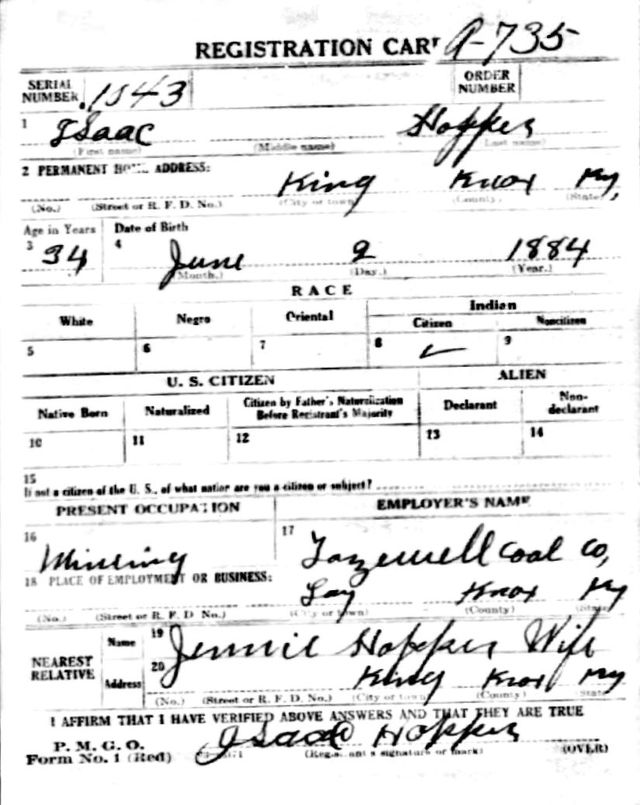 REGISTRATION CARD A-735
SERIAL NUMBER 1543 ORDER NUMBER
1 Isaac Hopper
(First name) (Middle name) (Last name)
2 PERMANENT HOME ADDRESS:
King Knox Ky,
(No.) (Street or R. F. D. No.) (City or town) (County) (State)
Age in Years Date of Birth
3 34 4 June 2 1884
(Month.) (Day.) (Year.)
RACE
White Negro Oriental Indian
Citizen Noncitizen
5 6 7 8 ✓ 9
U. S. CITIZEN ALIEN
Native Born Naturalized Citizen by Father's Naturalization Before Registrant's Majority Declarant Non-declarant
10 11 12 13 14
15
If not a citizen of the U. S., of what nation are you a citizen or subject?
PRESENT OCCUPATION EMPLOYER'S NAME
16 Mining 17 Tazewell Coal Co,
18 PLACE OF EMPLOYMENT OR BUSINESS:
Knox Ky
(No.) (Street or R. F. D. No.) (City or town) (County) (State)
NEAREST RELATIVE Name 19 Jennie Hopper Wife
Address 20 King Knox Ky
(No.) (Street or R. F. D. No.) (City or town) (County) (State)
I AFFIRM THAT I HAVE VERIFIED ABOVE ANSWERS AND THAT THEY ARE TRUE
P. M. G. O.
Form No. 1 (Red) Isaac Hopper
(Registrant's signature or mark) (OVER)